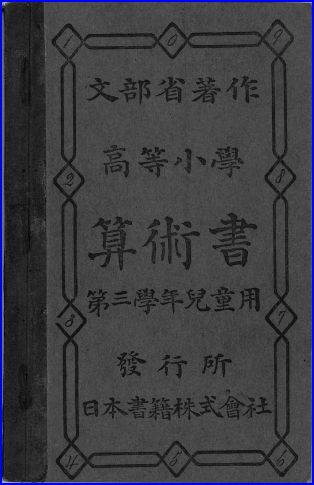 文部省著作
高等小學
算術書
第三學年兒童用
發行所
日本書籍株式會社
1 0 9
2 8
3 7
4 5 6